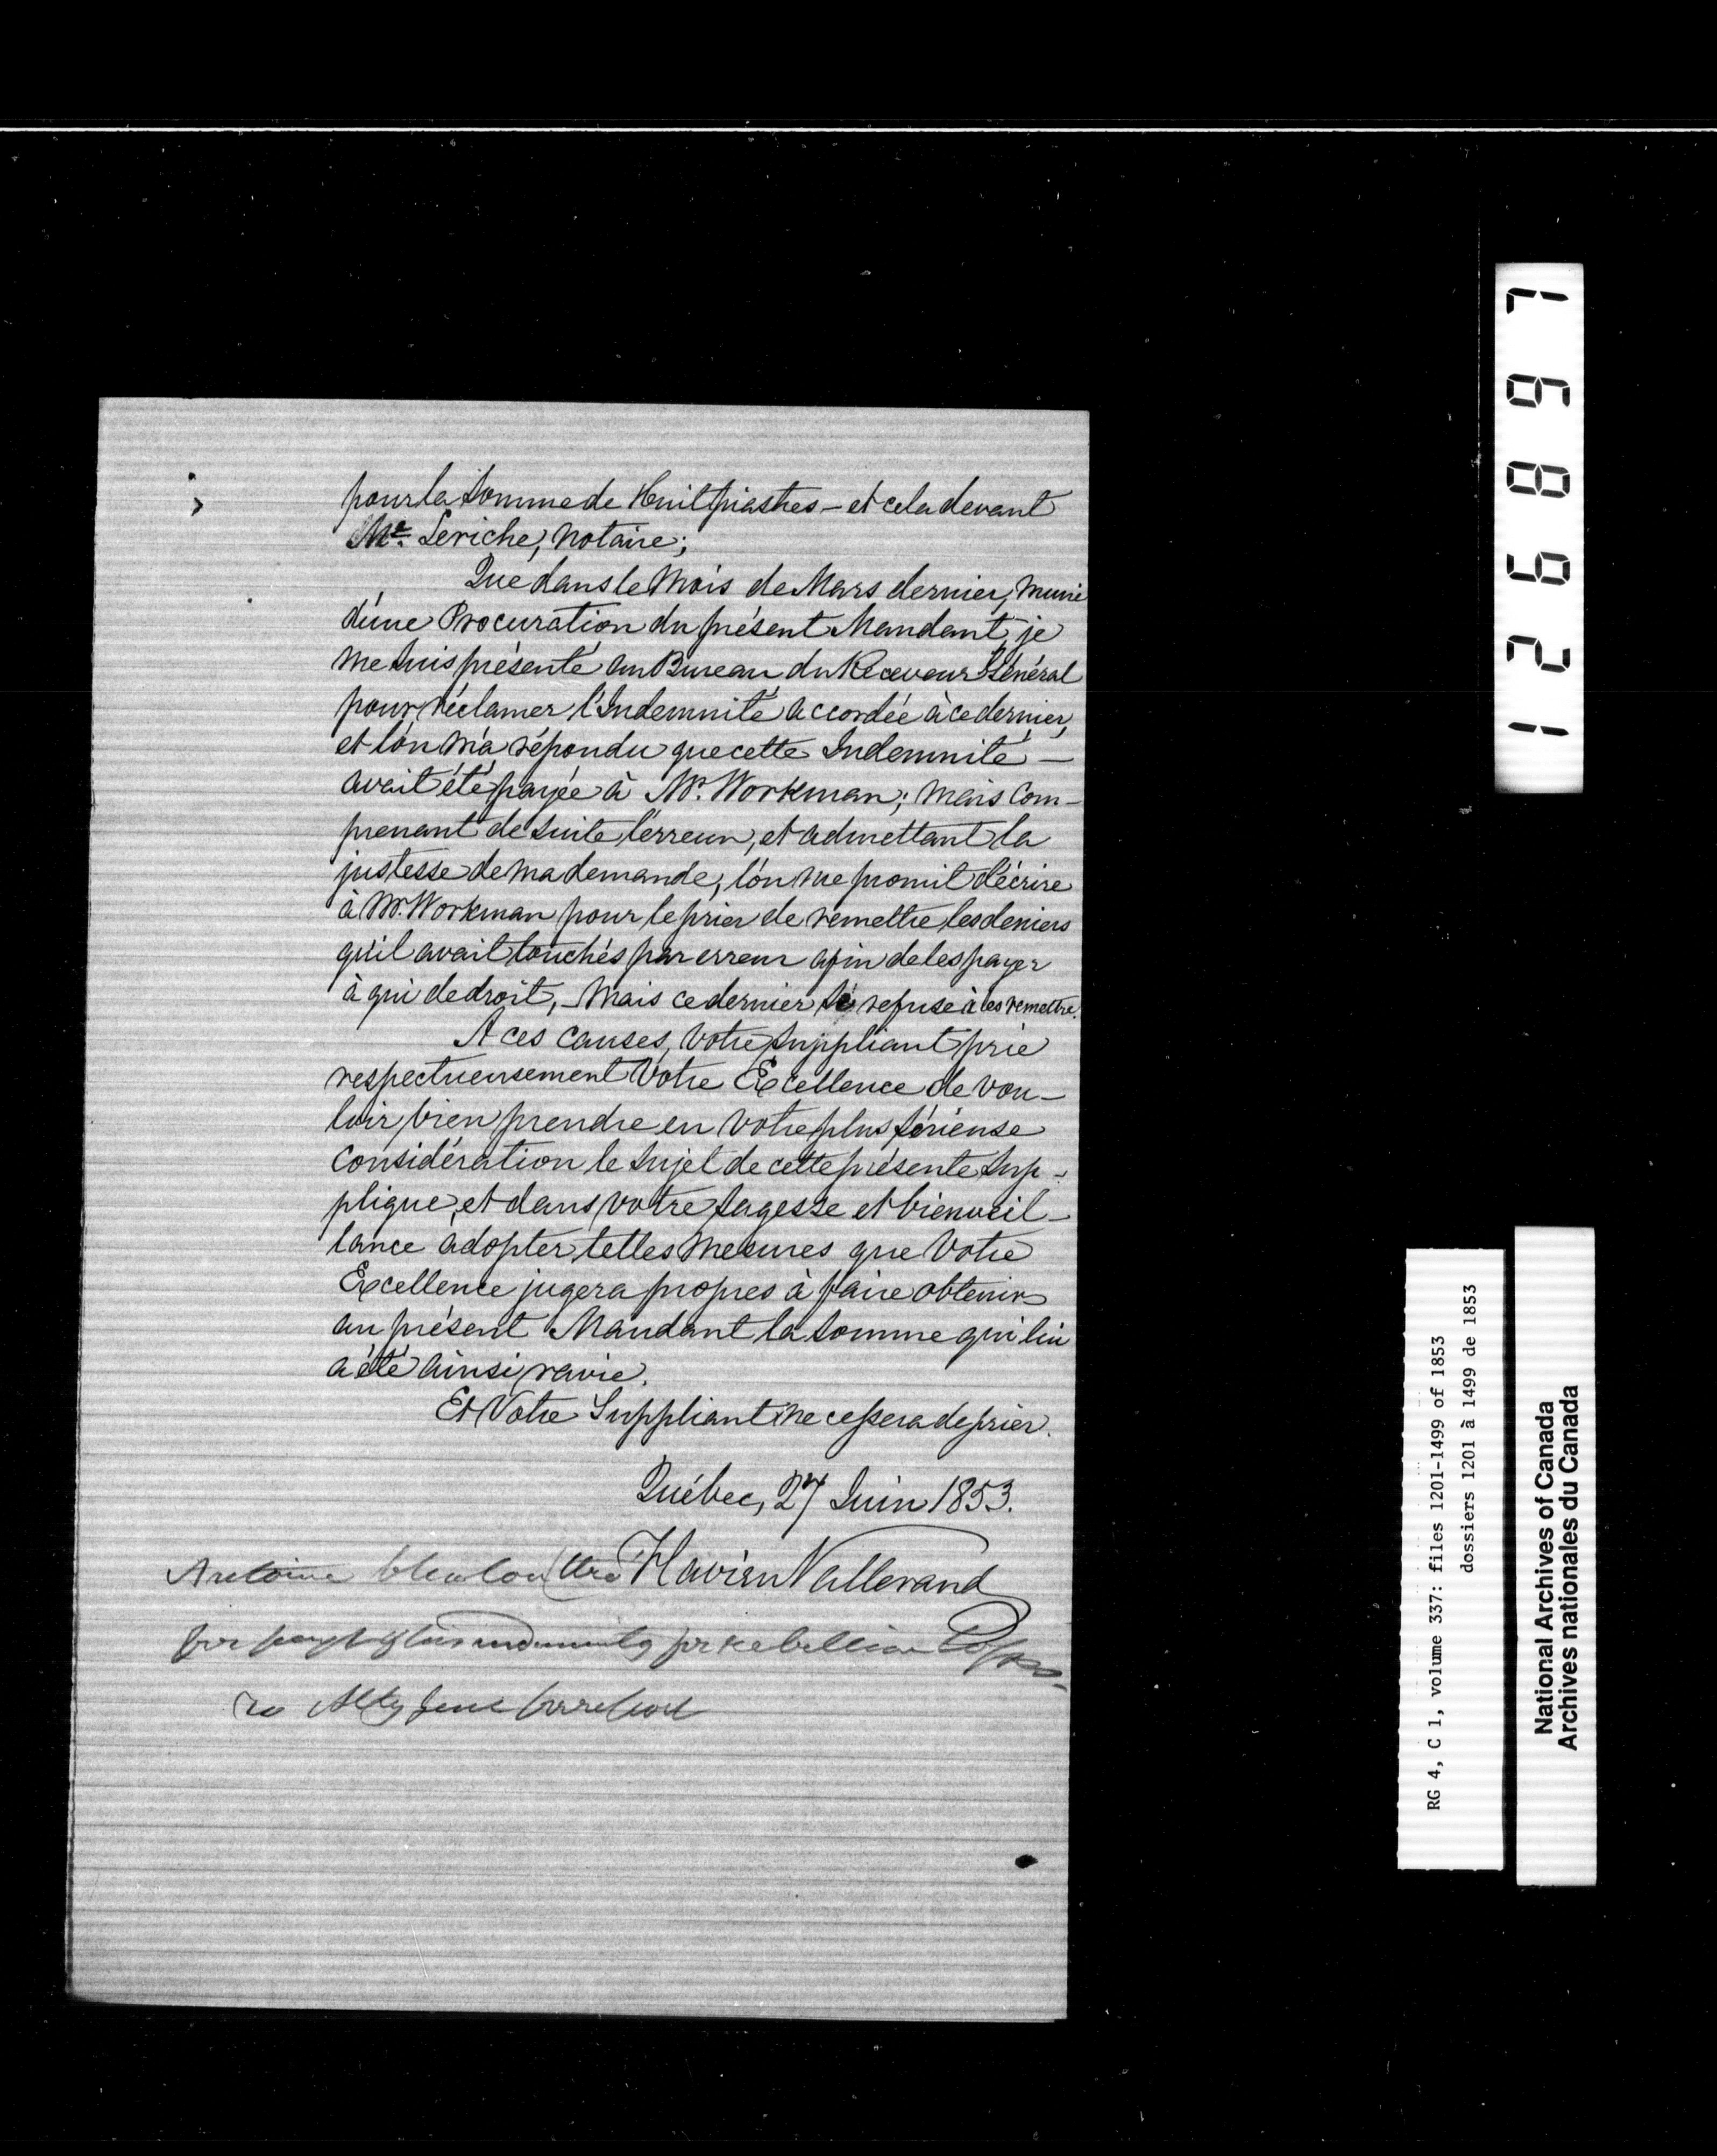 pour la Somme de Huit piastres – et cela devant
Me. Leriche, Notaire;
Que dans le Mois de Mars dernier, muni
d'une Procuration du présent Mandant, je
me suis présenté au Bureau du Receveur Général
pour réclamer l'Indemnité accordée à ce dernier,
et l'on m'a répondu que cette Indemnité –
avait été payée à Mr. Workman; mais com-
prenant de suite l'erreur, et admettant la
justesse de ma demande, l'on me promit d'écrire
à Mr. Workman pour le prier de remettre les deniers
qu'il avait touchés par erreur afin de les payer
à qui de droit, – Mais ce dernier se refuse à les remettre.
A ces causes, Votre Suppliant prie
respectueusement Votre Excellence de vou-
loir bien prendre en Votre plus sérieuse
Considération le sujet de cette présente Sup-
plique, et dans votre sagesse et bienveil-
lance adopter telles mesures que Votre
Excellence jugera propres à faire obtenir
au présent Mandant la somme qui lui
a été ainsi ravie.
Et Votre Suppliant ne cessera de prier.
Québec, 27 Juin 1853.
Flavien Vallerand
Antoine
for payt of his indemnity for Rebellion Losses
126897
RG 4, C 1, volume 337: files 1201-1499 of 1853
dossiers 1201 à 1499 de 1853
National Archives of Canada
Archives nationales du Canada